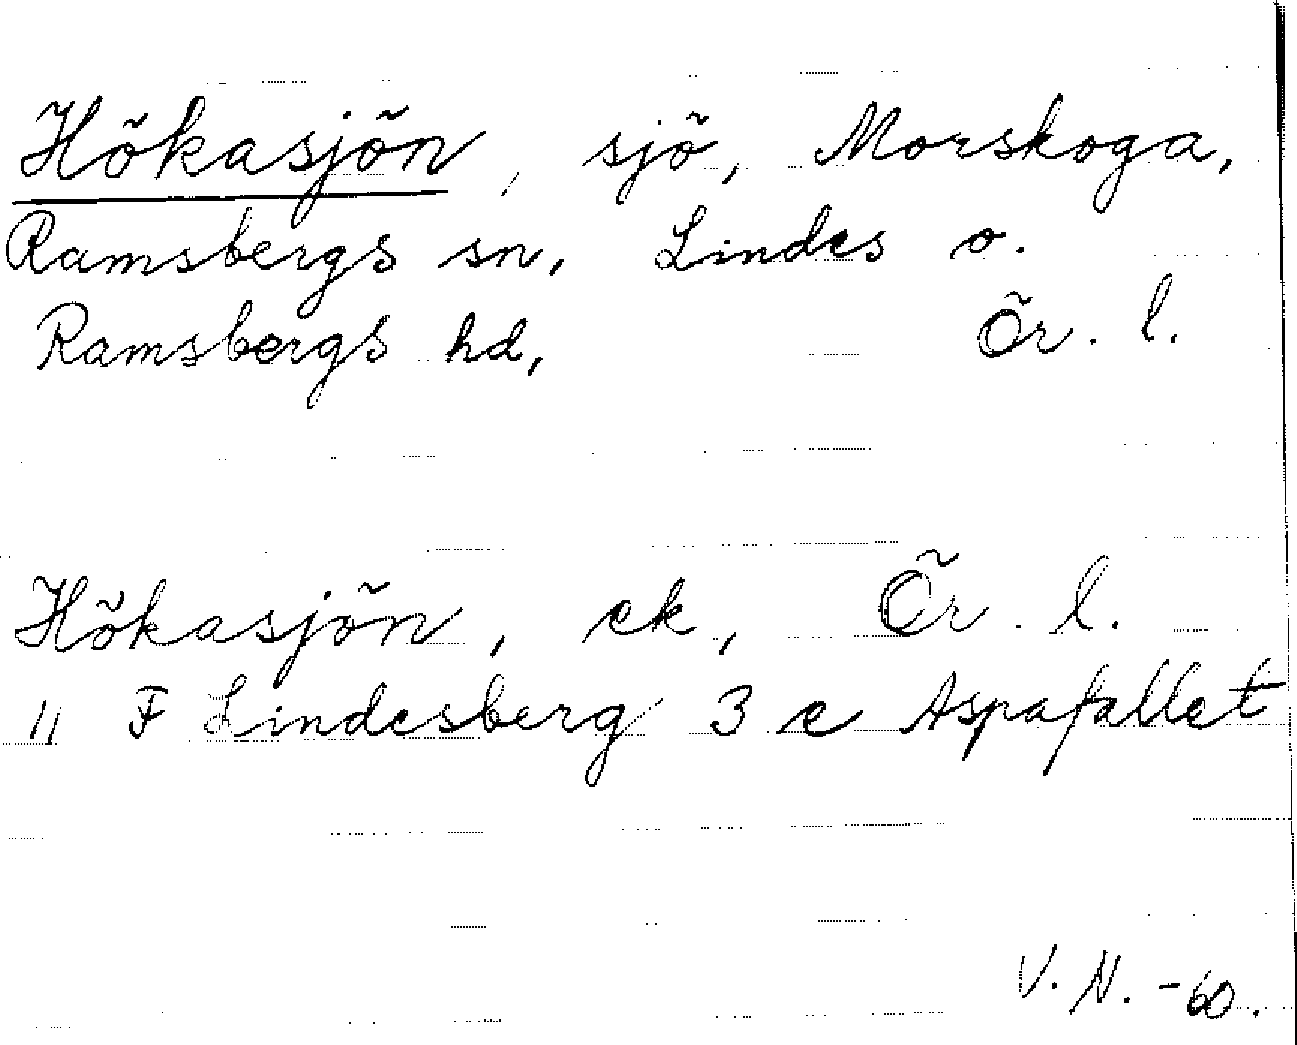 Hökasjön, sjö, Morskoga,
Ramsbergs sn, Lindes o.
Ramsbergs hd, Ör. l.
Hökasjön, ek, Ör. l.
11 F Lindesberg 3 e Aspafallet
V. N. -60.